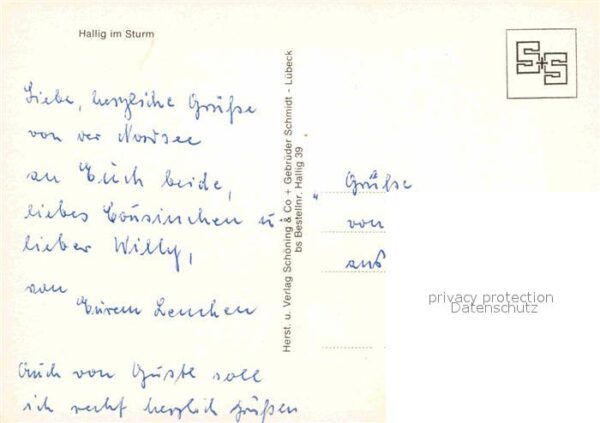 Hallig im Sturm
Liebe, herzliche Grüße
von der Nordsee
an Euch beide,
liebes Cousinchen u.
lieber Willy,
von
Eurem Lenchen
Auch von Gustl soll
ich recht herzlich grüßen
Herst. u. Verlag Schöning & Co + Gebrüder Schmidt - Lübeck
bs Bestellnr. Hallig 39
S+S
" Grüße
von
aus
privacy protection
Datenschutz